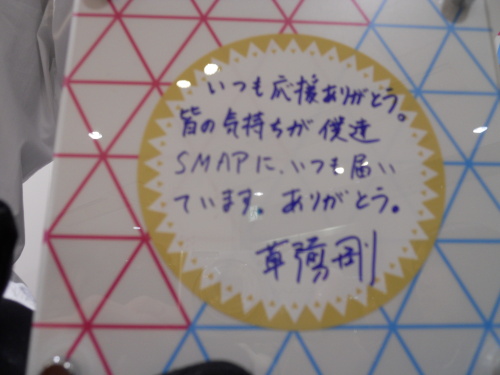 いつも応援ありがとう。
皆の気持ちが僕達
SMAPに、いつも届い
ています。ありがとう。
草彅剛